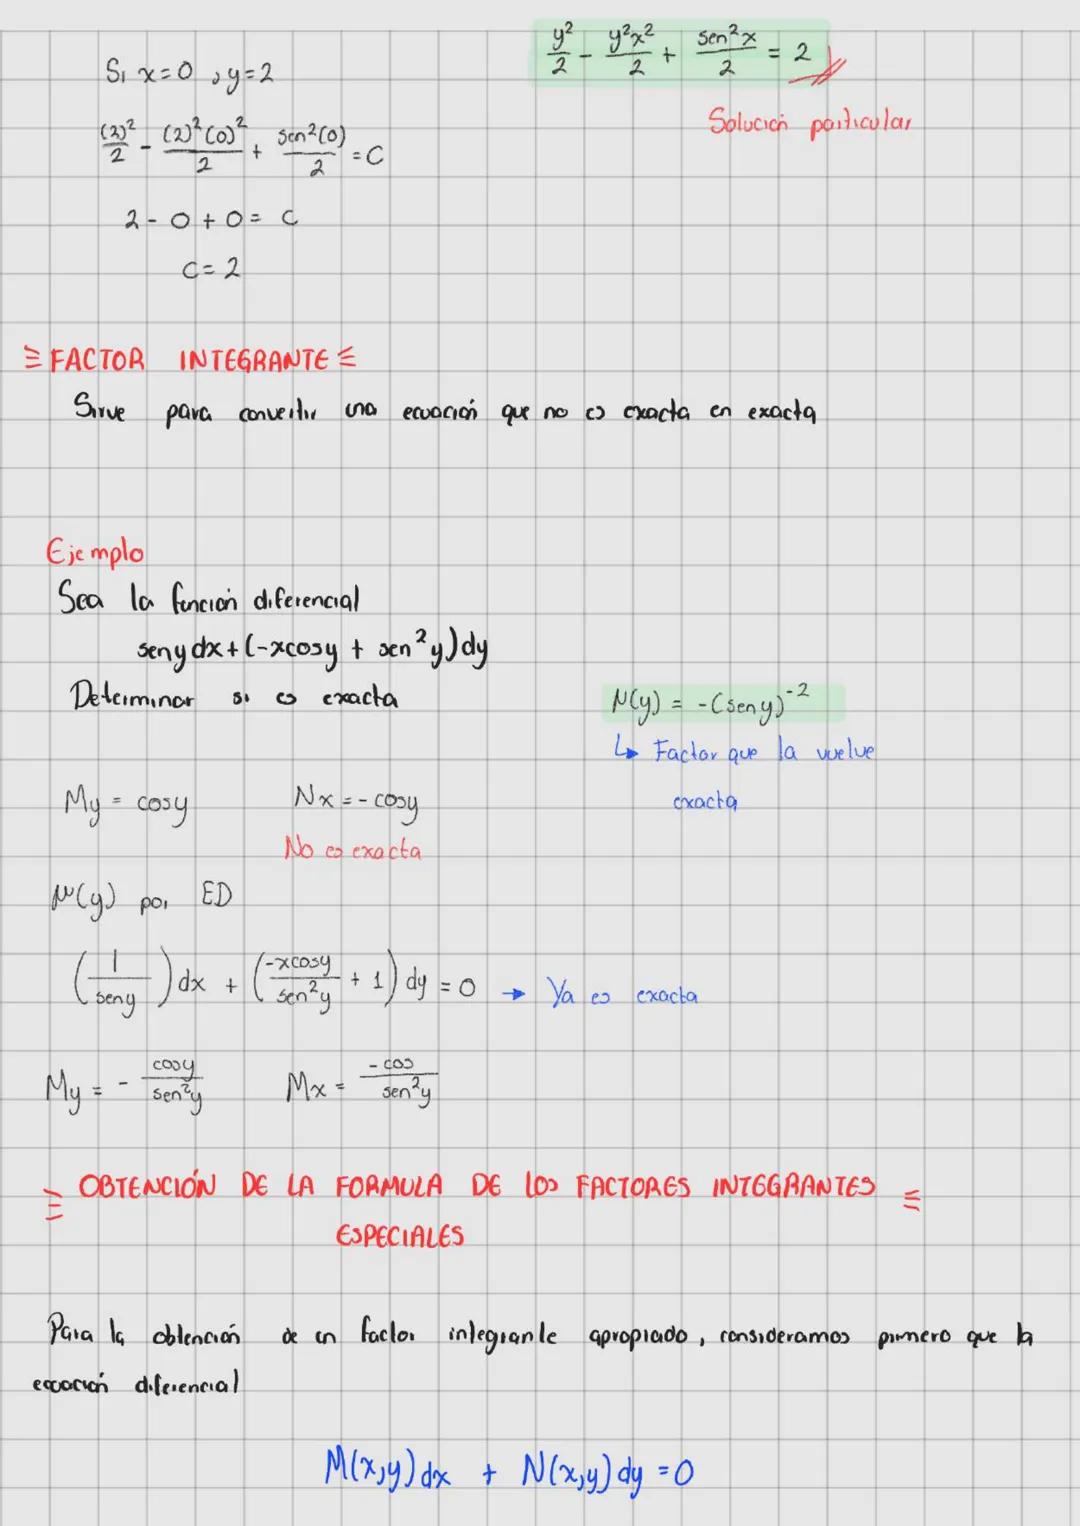 y²/2 - y²x²/2 + sen²x/2 = 2
Solución particular
Si x=0 , y=2
(2)²/2 - (2)²(0)²/2 + sen²(0)/2 = C
2 - 0 + 0 = C
C = 2
FACTOR INTEGRANTE
Sirve para convertir una ecuación que no es exacta en exacta
Ejemplo
Sea la función diferencial
seny dx + (-xcosy + sen²y)dy
Determinar si es exacta
μ(y) = -(seny)⁻²
↳ Factor que la vuelve
exacta
My = cosy Nx = - cosy
No es exacta
μ(y) por ED
(1/seny) dx + (-xcosy/sen²y + 1) dy = 0 → Ya es exacta
My = - cosy/sen²y Mx = - cos/sen²y
OBTENCIÓN DE LA FORMULA DE LOS FACTORES INTEGRANTES
ESPECIALES
Para la obtención de un factor integrante apropiado, consideramos primero que la
ecuación diferencial
M(x,y) dx + N(x,y) dy = 0